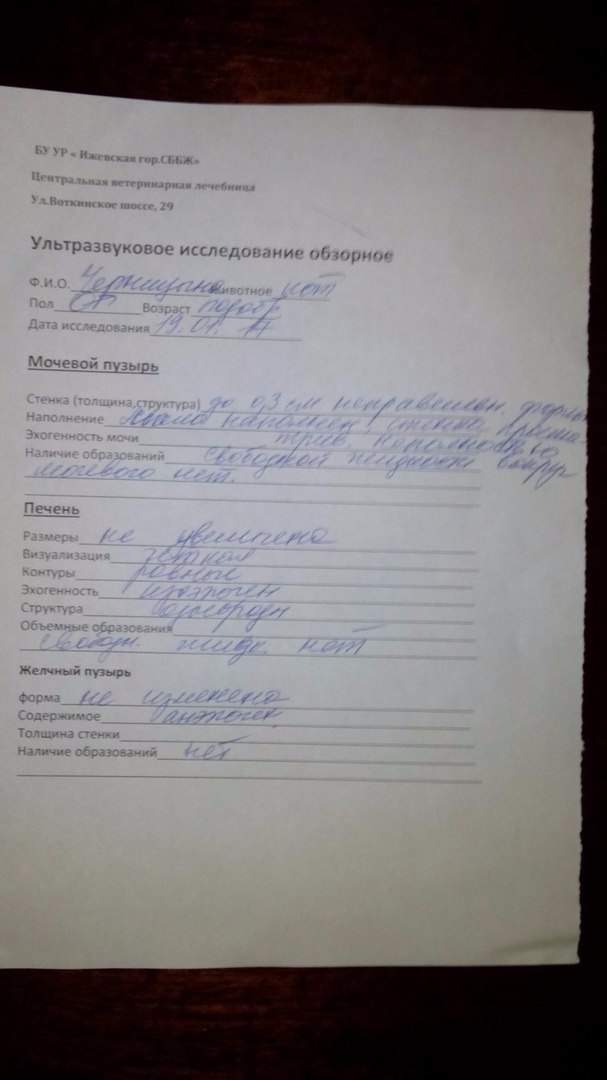 БУ УР « Ижевская гор.СББЖ»
Центральная ветеринарная лечебница
Ул.Воткинское шоссе, 29
Ультразвуковое исследование обзорное
Ф.И.О. животное кот
Пол Возраст
Дата исследования 19.01.
Мочевой пузырь
Стенка (толщина,структура) до 0,3 см неправилен. формы
Наполнение мало наполнен, стенка
Эхогенность мочи неполностью
Наличие образований свободной жидкости вокруг
мочевого нет.
Печень
Размеры не увеличена
Визуализация четкая
Контуры ровные
Эхогенность изоэхоген
Структура однородн
Объемные образования
свободн. жидк. нет
Желчный пузырь
форма не изменена
Содержимое анэхоген.
Толщина стенки
Наличие образований нет